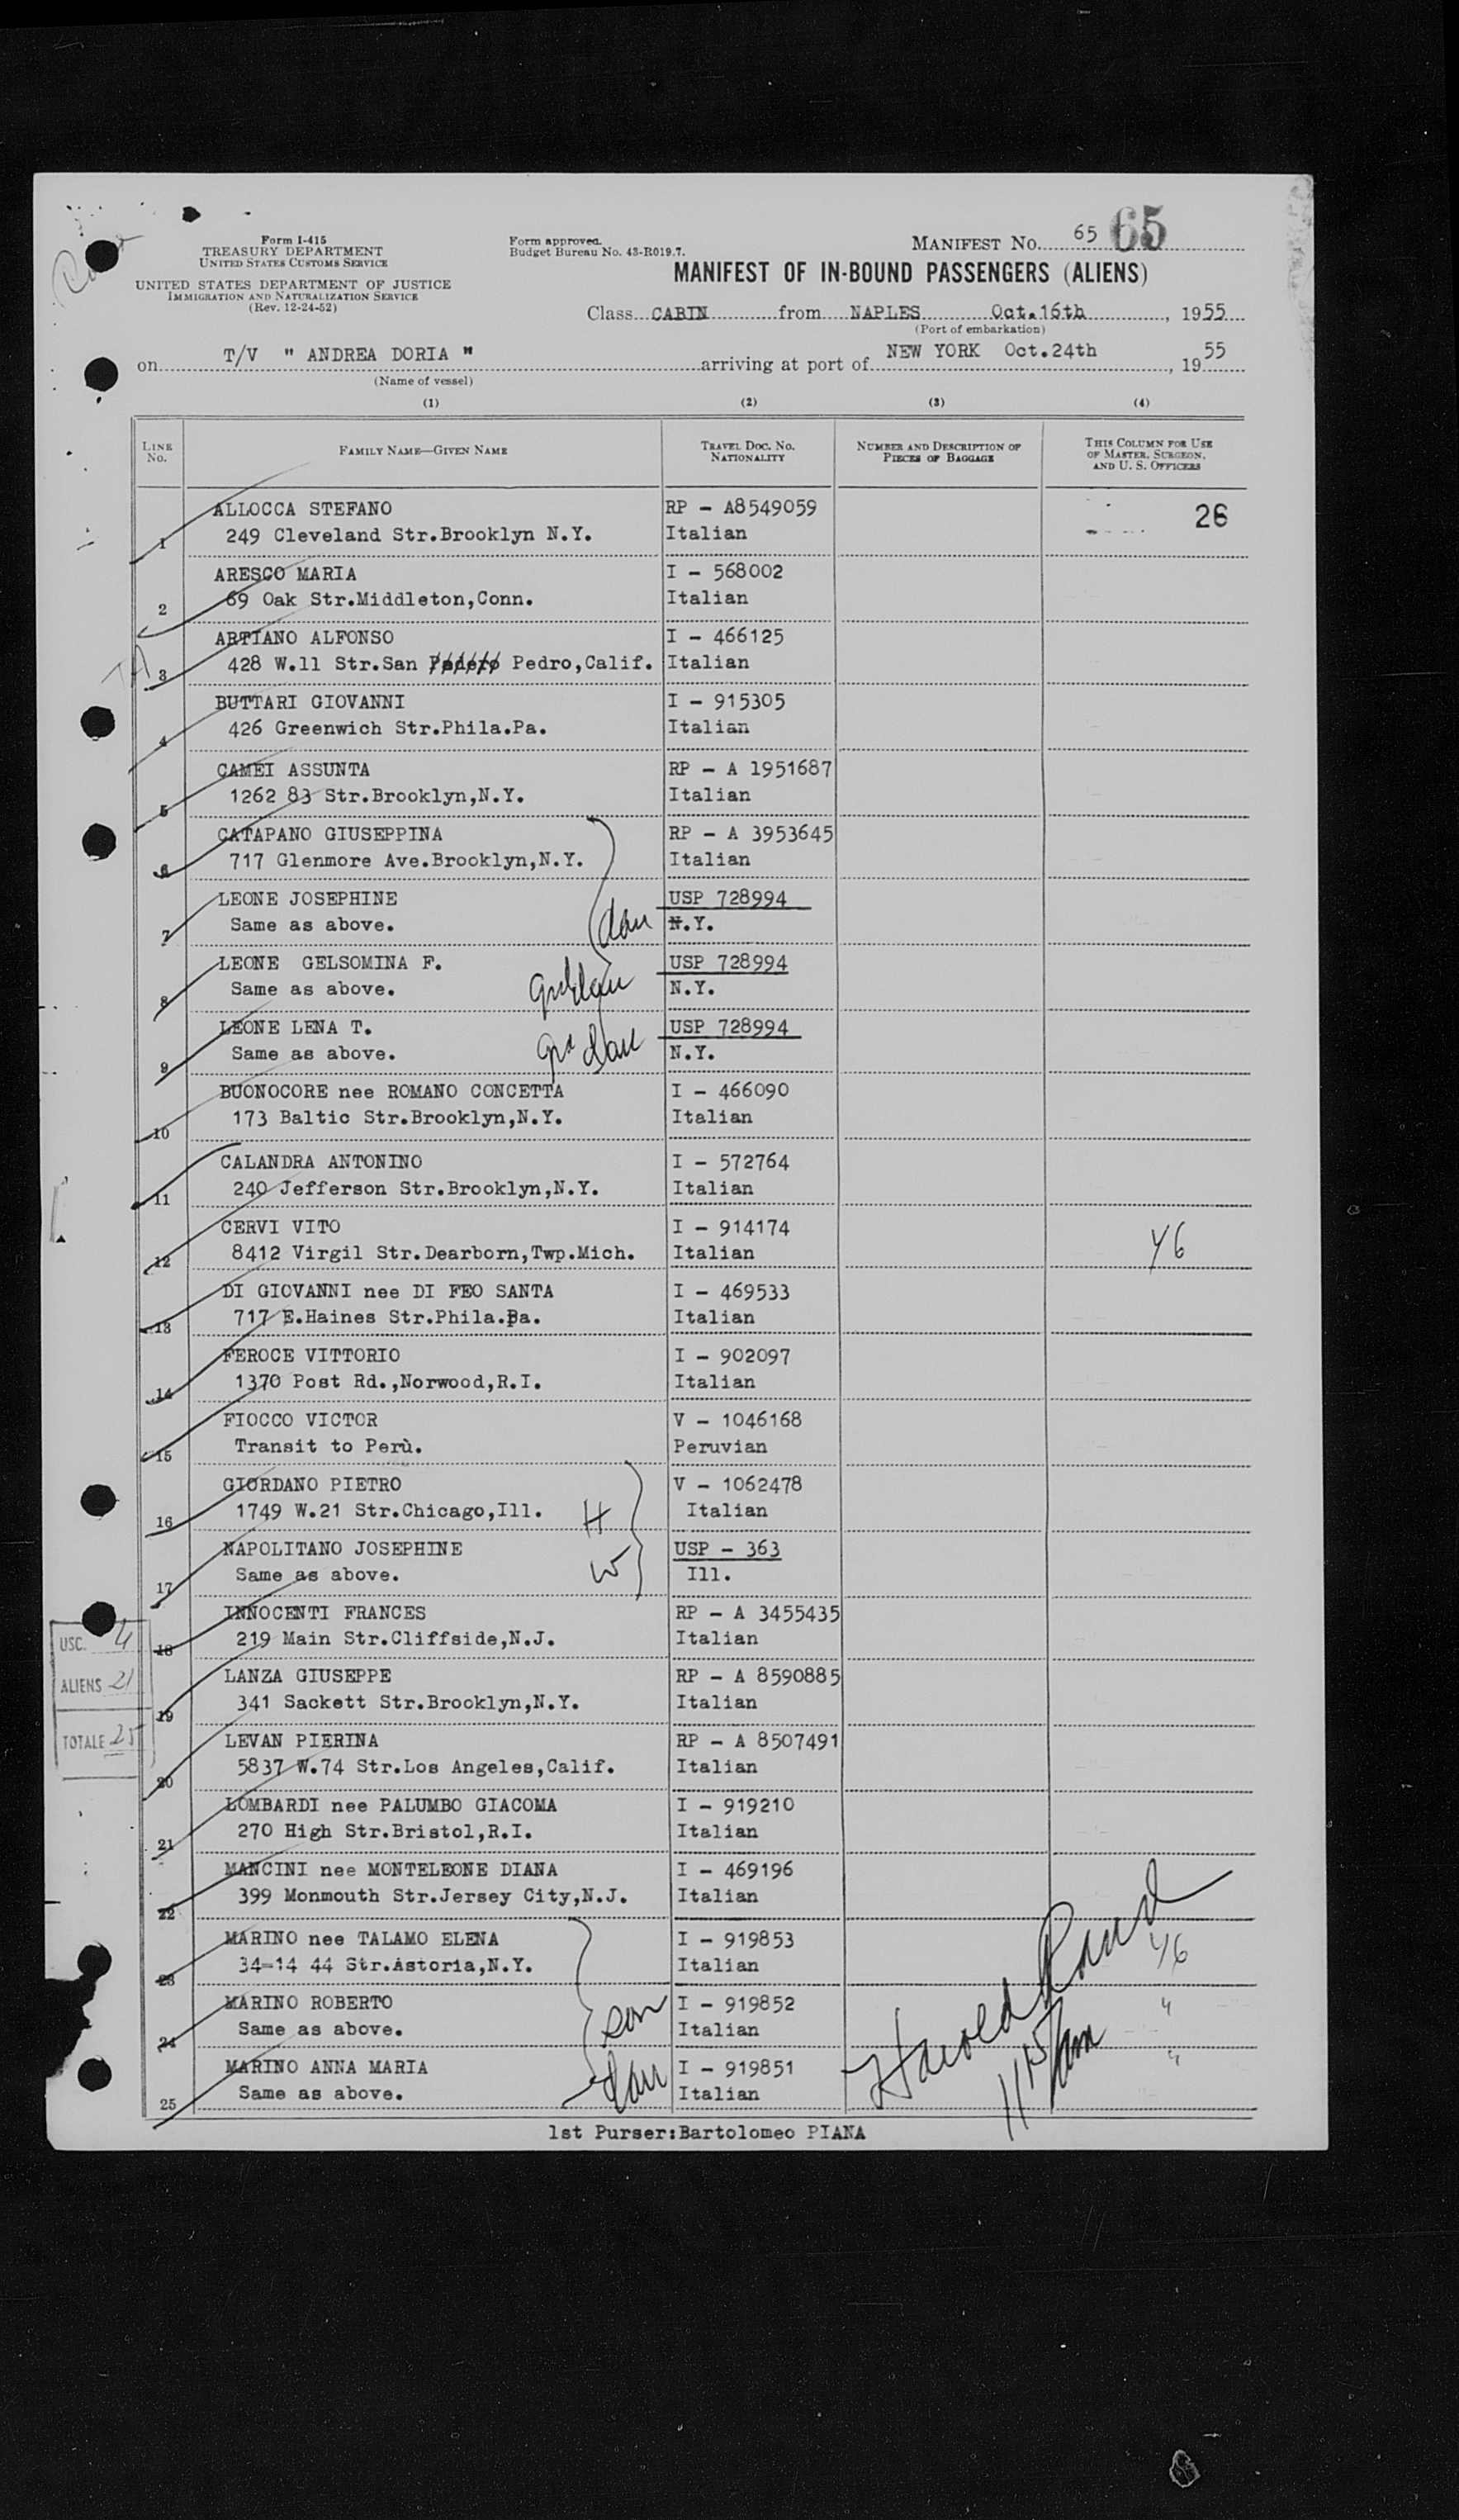 Form I-415
TREASURY DEPARTMENT
UNITED STATES CUSTOMS SERVICE
UNITED STATES DEPARTMENT OF JUSTICE
IMMIGRATION AND NATURALIZATION SERVICE
(Rev. 12-24-52)
Form approved.
Budget Bureau No. 43-R019.7.
MANIFEST No. 65 65
MANIFEST OF IN-BOUND PASSENGERS (ALIENS)
Class CABIN from NAPLES Oct.16th, 1955
(Port of embarkation)
on T/V " ANDREA DORIA " arriving at port of NEW YORK Oct.24th, 1955
(Name of vessel)
(1) (2) (3) (4)
LINE No. FAMILY NAME—GIVEN NAME TRAVEL DOC. No. NATIONALITY NUMBER AND DESCRIPTION OF PIECES OF BAGGAGE THIS COLUMN FOR USE OF MASTER, SURGEON, AND U. S. OFFICERS
ALLOCCA STEFANO RP - A8549059 26
1 249 Cleveland Str.Brooklyn N.Y. Italian
ARESCO MARIA I - 568002
2 69 Oak Str.Middleton,Conn. Italian
ARTIANO ALFONSO I - 466125
3 428 W.11 Str.San Pedro,Calif. Italian
BUTTARI GIOVANNI I - 915305
4 426 Greenwich Str.Phila.Pa. Italian
CAMEI ASSUNTA RP - A 1951687
5 1262 83 Str.Brooklyn,N.Y. Italian
CATAPANO GIUSEPPINA RP - A 3953645
6 717 Glenmore Ave.Brooklyn,N.Y. Italian
LEONE JOSEPHINE USP 728994
7 Same as above. dau N.Y.
LEONE GELSOMINA F. USP 728994
8 Same as above. grddau N.Y.
LEONE LENA T. USP 728994
9 Same as above. grd dau N.Y.
BUONOCORE nee ROMANO CONCETTA I - 466090
10 173 Baltic Str.Brooklyn,N.Y. Italian
CALANDRA ANTONINO I - 572764
11 240 Jefferson Str.Brooklyn,N.Y. Italian
CERVI VITO I - 914174
12 8412 Virgil Str.Dearborn,Twp.Mich. Italian Y6
DI GIOVANNI nee DI FEO SANTA I - 469533
13 717 E.Haines Str.Phila.Pa. Italian
FEROCE VITTORIO I - 902097
14 1370 Post Rd.,Norwood,R.I. Italian
FIOCCO VICTOR V - 1046168
15 Transit to Perù. Peruvian
GIORDANO PIETRO V - 1062478
16 1749 W.21 Str.Chicago,Ill. H Italian
NAPOLITANO JOSEPHINE USP - 363
17 Same as above. W Ill.
INNOCENTI FRANCES RP - A 3455435
18 219 Main Str.Cliffside,N.J. Italian
LANZA GIUSEPPE RP - A 8590885
19 341 Sackett Str.Brooklyn,N.Y. Italian
LEVAN PIERINA RP - A 8507491
20 5837 W.74 Str.Los Angeles,Calif. Italian
LOMBARDI nee PALUMBO GIACOMA I - 919210
21 270 High Str.Bristol,R.I. Italian
MANCINI nee MONTELEONE DIANA I - 469196
22 399 Monmouth Str.Jersey City,N.J. Italian
MARINO nee TALAMO ELENA I - 919853
23 34-14 44 Str.Astoria,N.Y. Italian Y6
MARINO ROBERTO I - 919852
24 Same as above. son Italian "
MARINO ANNA MARIA I - 919851
25 Same as above. dau Italian "
USC. 4
ALIENS 21
TOTALE 25
Harold
1st Purser:Bartolomeo PIANA